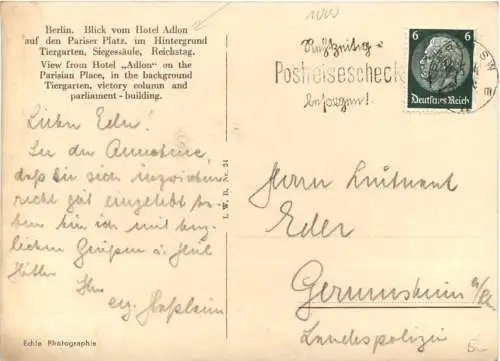 Berlin. Blick vom Hotel Adlon
auf den Pariser Platz, im Hintergrund
Tiergarten, Siegessäule, Reichstag.
View from Hotel „Adlon" on the
Parisian Place, in the background
Tiergarten, victory column and
parliament-building.
Rechtzeitig
Postreisescheck
besorgen!
6 6
Deutsches Reich
SW
Lieber Eder!
In der Annahme,
daß Sie sich inzwischen
recht gut eingelebt ha-
ben bin ich mit herz-
lichen Grüßen u. Heil
Hitler
Ihr
I. W. B. Nr. 24
Herrn Leutnant
Eder
Germersheim a/R
Landespolizei
Echte Photographie